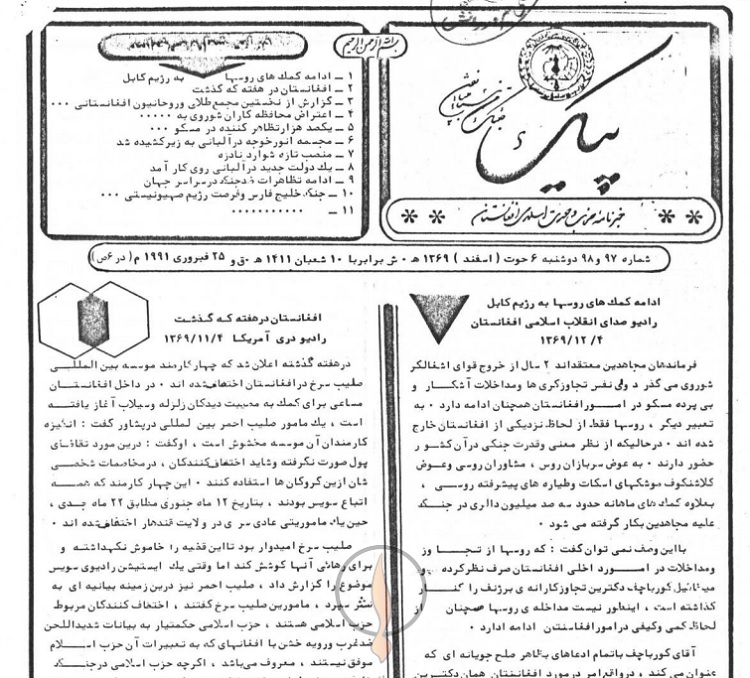 بسم الله الرحمن الرحیم
پیک
خبرنامه
افغانستان
۱ ــ ادامه کمک های روسها به رژیم کابل
۲ ــ افغانستان در هفته که گذشت
۳ ــ گزارش از نخستین مجمع طلای وروحانیون افغانستانی ۰۰۰
۴ ــ اعتراض محافظه کاران شوروی به ۰۰۰۰۰
۵ ــ یکصد هزارتظاهر کننده در مسکو ۰۰۰
۶ ــ مجسمه انورخوجه درآلبانی به زیرکشیده شد
۷ ــ منصب تازه شوارد نادزه
۸ ــ یک دولت جدید درآلبانی روی کار آمد
۹ ــ ادامه تظاهرات ضدجنگ درسراسر جهان
۱۰ ــ جنگ خلیج فارس وفرصت رژیم صهیونیستی ۰۰۰
۱۱ ــ ۰۰۰۰۰۰۰۰۰۰۰
شماره ۹۷ و۹۸ دوشنبه ۶ حوت ( اسفند ) ۱۳۶۹ ه ۰ ش برابربا ۱۰ شعبان ۱۴۱۱ ه ۰ق و ۲۵ فبروری ۱۹۹۱ م ( در ۶ص )
ادامه کمک های روسها به رژیم کابل
رادیو صدای انقلاب اسلامی افغانستان
۱۳۶۹/۱۲/۴
فرماندهان مجاهدین معتقداند ۲ سال از خروج قوای اشغالگر
شوروی می گذر د ولی نفس تجاوزگری ها ومداخلات آشکار و
بی پرده مسکو در امـــور افغانستان همچنان ادامه دارد ۰ به
تعبیر دیگر ، روسها فقط از لحاظ نزدیکی از افغانستان خارج
شده اند ۰ درحالیکه از نظر معنی وقدرت جنگی درآن کشـو ر
حضور دارند ۰ به عوض سربازان روس ، مشاوران روسی وعوض
کلاشنکوف موشکهای اسکات وطیاره های پیشرفته روسـی ،
بعلاوه کمک های ماهانه حدود سه صد میلیون دالری در جنـگ
علیه مجاهدین بکار گرفته می شود ۰
بااین وصف نمی توان گفت : که روسها از تـجـــا وز
ومداخلات در امـــور د اخلی افغانستان صرف نظرکرده و
میخائیل کورباچف دکترین تجاوزکارانه ی برژنف را کنــــار
گذاشته است ، اینطور نیست مداخله ی روسها همچنان از
لحاظ کمی وکیفی درامورافغانستان ادامه دارد ۰
آقای کورباچف باتمام ادعاهای بظاهر صلح جویانه ای که
عنوان می کند ، درواقع امر درمورد افغانستان همان دکتـــرین
افغانستان درهفته کـه گـذشت
رادیو دری آمریکا ۱۳۶۹/۱۱/۴
درهفته گذشته اعلان شد که چهار کارمند موسسه بین المللـــی
صلیب سرخ درافغانستان اختطاف شده اند ۰ در داخل افغانستــان
مساعی برای کمک به مصیبت دیدکان زلزله وسیلاب آغاز یافتــه
است ، یک مامور صلیب احمر بین المللی درپشاور گفت : انگیزه
کارمندان آن موسسه مخشوش است ، اوگفت : درین مورد تقاضای
پول صورت نگرفته وشاید اختطاف کنندکان ، درمخاصمات شخصــی
شان ازین گروگان ها استفاده کنند ۰ این چهار کارمند که همـــه
اتباع سویس بودند ، بتاریخ ۱۲ ماه جنوری مطابق ۲۲ ماه جـدی ،
حین یک ماموریتی عادی سر ی در ولایت قندهار اختطاف شده اند ۰
صلیب سرخ امیدوار بود تااین قضیه را خاموش نگهداشتـه و
برای رهائی آنها کوشش کند اما وقتی یک ایستیشن رادیوی سویس
موضوع را گزارش داد ، صلیب احمر نیز درین زمینه بیانیه ای به
نشر سپرد ، مامورین صلیب سرخ گفتند ، اختطاف کنندگان مربوط
حزب اسلامی هستند ، حزب اسلامی حکمتیار به بیانات شدیداللحن
ضدغرب ورویه خشن با افغانهای که به تعبیرات آن حزب اســـلام
موفق نیستند ، معروف میباشد ، اگرچه حزب اسلامی درجنـــگ